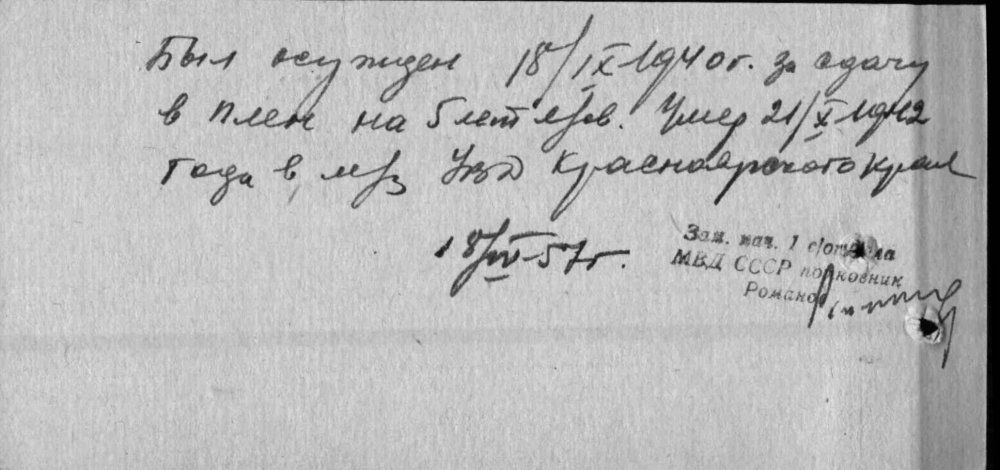 Был осужден 18/IX-1940г. за сдачу
в плен на 5 лет л/св. Умер 21/X-1942
года в м/з УВД Красноярского края
18/VI-57г.
Зам. нач. 1 с/отдела
МВД СССР полковник
Романов